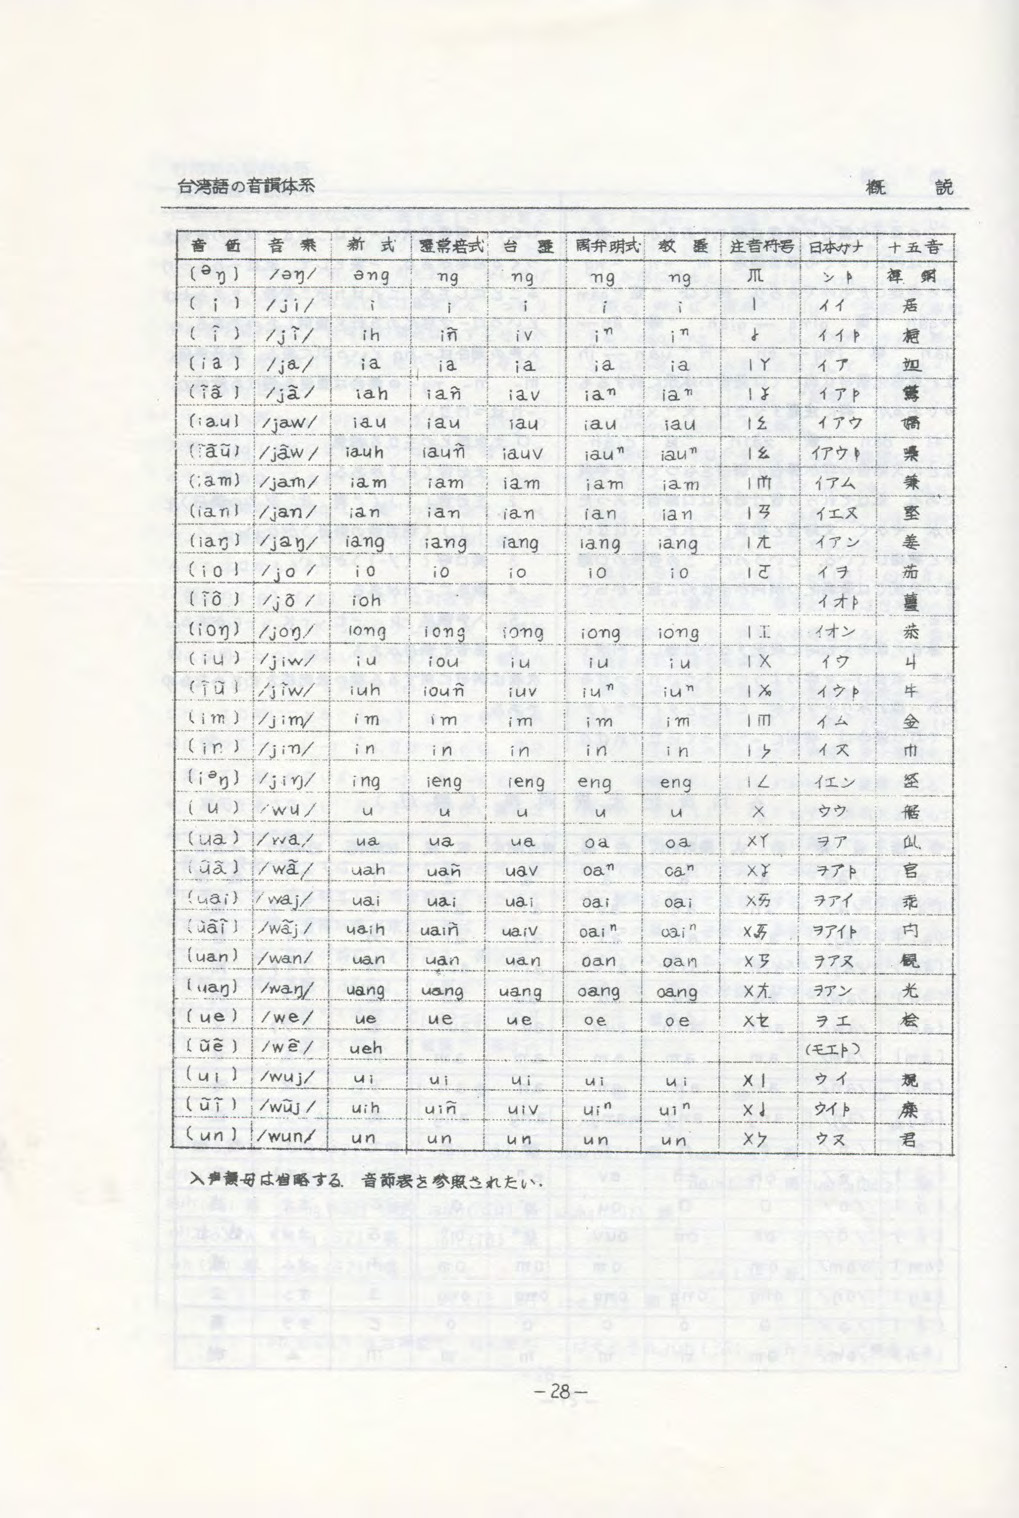 台湾語の音韻体系 概 説
音 価 音 素 新 式 羅常培式 台 羅 周弁明式 教 羅 注音符号 日本カナ 十五音
(ᵊŋ) /əŋ/ əng ng ng ng ng ㆭ ンㇳ 禅 鋼
(i) /ji/ i i i i i ㄧ イイ 居
(ĩ) /jĩ/ ih iñ iv iⁿ iⁿ ㆪ イイㇳ 梔
(ia) /ja/ ia ia ia ia ia ㄧㄚ イア 迦
(ĩã) /jã/ iah iañ iav iaⁿ iaⁿ ㄧㆩ イアㇳ 驚
(iau) /jaw/ iau iau iau iau iau ㄧㄠ イアウ 嬌
(ĩãũ) /jãw/ iauh iauñ iauv iauⁿ iauⁿ ㄧㆯ イアウㇳ
(iam) /jam/ iam iam iam iam iam ㄧㆰ イアム 兼
(ian) /jan/ ian ian ian ian ian ㄧㄢ イエヌ 堅
(iaŋ) /jaŋ/ iang iang iang iang iang ㄧㄤ イアン 姜
(io) /jo/ io io io io io ㄧㄜ イヲ 茄
(ĩõ) /jõ/ ioh イオㇳ 薑
(ioŋ) /joŋ/ iong iong iong iong iong ㄧㆲ イオン 恭
(iu) /jiw/ iu iou iu iu iu ㄧㄨ イウ 丩
(ĩũ) /jĩw/ iuh iouñ iuv iuⁿ iuⁿ ㄧㆫ イウㇳ 牛
(im) /jim/ im im im im im ㄧㆬ イム 金
(in) /jin/ in in in in in ㄧㄣ イヌ 巾
(iᵊŋ) /jiŋ/ ing ieng ieng eng eng ㄧㄥ イエン 経
(u) /wu/ u u u u u ㄨ ウウ
(ua) /wa/ ua ua ua oa oa ㄨㄚ ヲア
(ũã) /wã/ uah uañ uav oaⁿ oaⁿ ㄨㆩ ヲアㇳ 官
(uai) /waj/ uai uai uai oai oai ㄨㄞ ヲアイ 乖
(ũãĩ) /wãj/ uaih uaiñ uaiv oaiⁿ oaiⁿ ㄨㆮ ヲアイㇳ
(uan) /wan/ uan uan uan oan oan ㄨㄢ ヲアヌ 観
(uaŋ) /waŋ/ uang uang uang oang oang ㄨㄤ ヲアン 光
(ue) /we/ ue ue ue oe oe ㄨㆤ ヲエ 桧
(ũẽ) /wẽ/ ueh (モエㇳ)
(ui) /wuj/ ui ui ui ui ui ㄨㄧ ウイ 規
(ũĩ) /wũj/ uih uiñ uiv uiⁿ uiⁿ ㄨㆪ ウイㇳ
(un) /wun/ un un un un un ㄨㄣ ウヌ 君
入声韻母は省略する. 音節表を参照されたい.
－28－